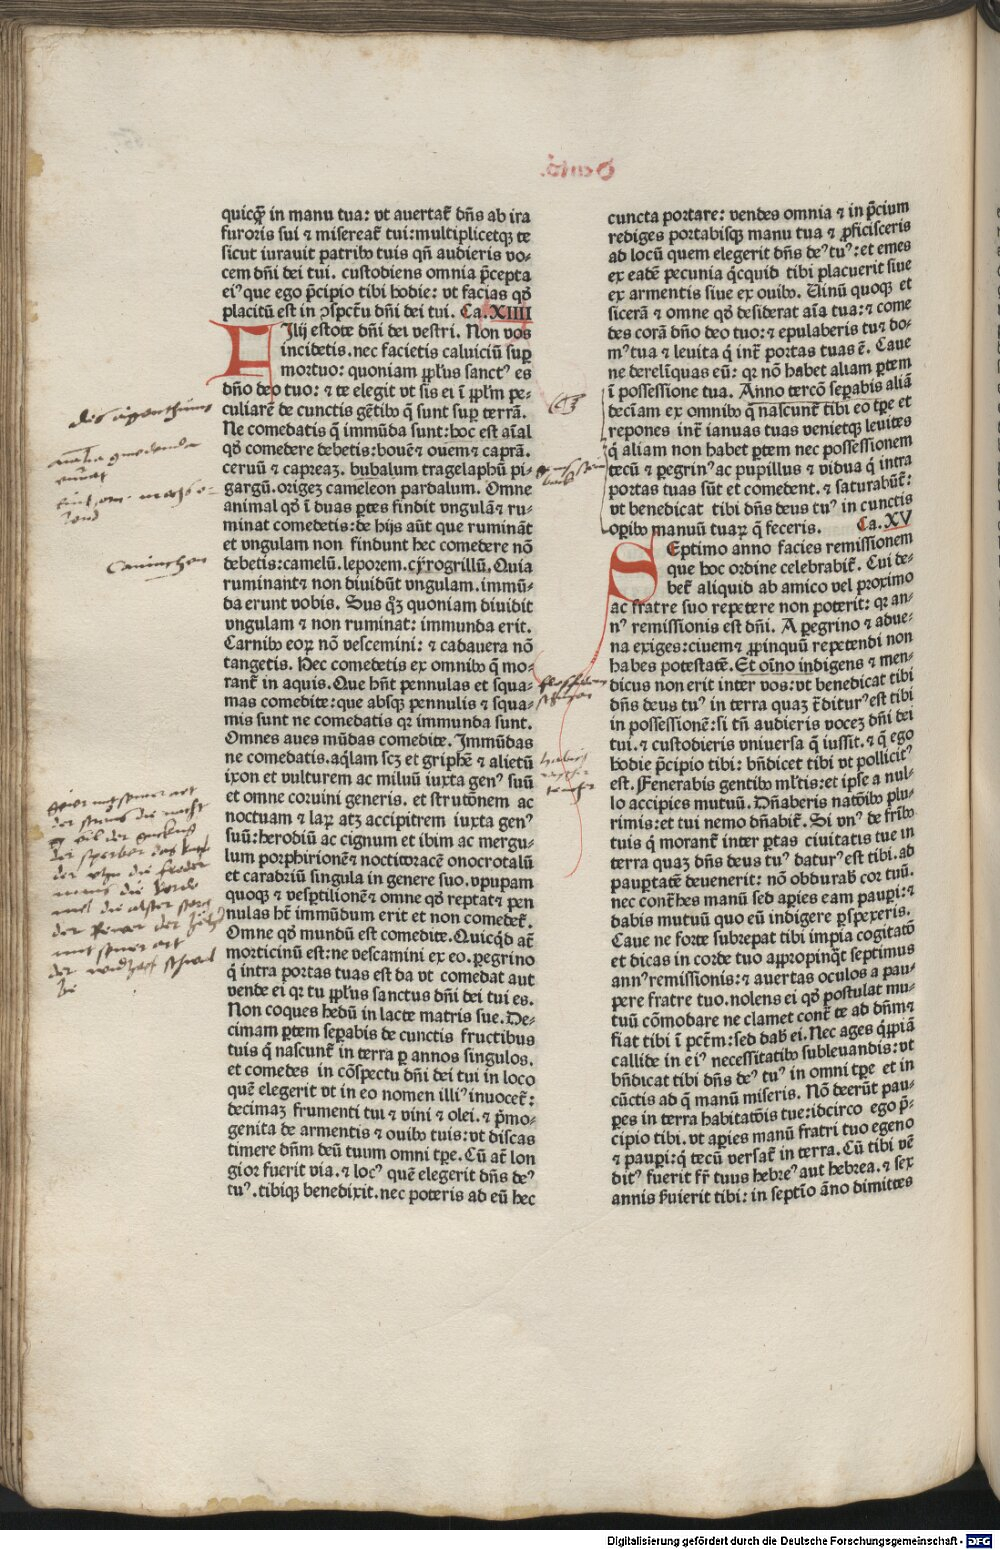 quicq̄ꝫ in manu tua: vt auertat̄ dn̄s ab ira
furoris sui ⁊ misereat̄ tui: multiplicetqꝫ te
sicut iurauit patribꝰ tuis qn̄ audieris vo⸗
cem dn̄i dei tui. custodiens omnia p̄cepta
eiꝰ que ego p̄cipio tibi hodie: vt facias qđ
placitū est in ↄspctū dn̄i dei tui. Ca. XIIII
FIlij estote dn̄i dei vestri. Non vos
incidetis. nec facietis caluiciū suꝑ
mortuo: quoniam ppl̄us sanctꝰ es
dn̄o deo tuo: ⁊ te elegit vt sis ei ī ppl̄m pe⸗
culiarē de cunctis gētibꝰ q̄ sunt suꝑ terrā.
Ne comedatis q̄ immūda sunt: hoc est aīal
qđ comedere debetis: bouē ⁊ ouem ⁊ caprā.
ceruū ⁊ capreaꝫ. bubalum tragelaphū pi⸗
gargū. origeꝫ cameleon pardalum. Omne
animal qđ ī duas ꝑtes findit vngulā ⁊ ru⸗
minat comedetis: de hijs aūt que rumināt
et vngulam non findunt hec comedere nō
debetis: camelū. leporem. cyrogrillū. Quia
ruminant ⁊ non diuidūt vngulam. immū⸗
da erunt vobis. Sus qꝫ quoniam diuidit
vngulam ⁊ non ruminat: immunda erit.
Carnibꝰ eoꝝ nō vescemini: ⁊ cadauera nō
tangetis. Hec comedetis ex omnibꝰ q̄ mo⸗
rant̄ in aquis. Que hn̄t pennulas et squa⸗
mas comedite: que absqꝫ pennulis ⁊ squa⸗
mis sunt ne comedatis qꝛ immunda sunt.
Omnes aues mūdas comedite. Immūdas
ne comedatis. aq̄lam scꝫ et griphē ⁊ alietū
ixon et vulturem ac miluū iuxta genꝰ suū
et omne coruini generis. et strutōnem ac
noctuam ⁊ laꝝ atqꝫ accipitrem iuxta genꝰ
suū: herodiū ac cignum et ibim ac mergu⸗
lum porphirionē ⁊ nocticoracē onocrotalū
et caradriū singula in genere suo. vpupam
quoqꝫ ⁊ vesꝑtilionē ⁊ omne qđ reptat ⁊ pen
nulas hꝫ immūdum erit et non comedet̄.
Omne qđ mundū est comedite. Quicq̄d at̄
morticinū est: ne vescamini ex eo. ꝑegrino
q̄ intra portas tuas est da vt comedat aut
vende ei qꝛ tu ppl̄us sanctus dn̄i dei tui es.
Non coques hedū in lacte matris sue. De⸗
cimam ꝑtem seꝑabis de cunctis fructibus
tuis q̄ nascunt̄ in terra ꝑ annos singulos.
et comedes in cōspectu dn̄i dei tui in loco
quē elegerit vt in eo nomen illiꝰ inuocet̄:
decimaꝫ frumenti tui ⁊ vini ⁊ olei. ⁊ p̄mo⸗
genita de armentis ⁊ ouibꝰ tuis: vt discas
timere dn̄m deū tuum omni tꝑe. Cū at̄ lon
gior fuerit via. ⁊ locꝰ quē elegerit dn̄s deꝰ
tuꝰ. tibiqꝫ benedixit. nec poteris ad eū hec
cuncta portare: vendes omnia ⁊ in p̄cium
rediges portabisqꝫ manu tua ⁊ ꝓficisceris
ad locū quem elegerit dn̄s deꝰ tuꝰ: et emes
ex eadē pecunia q̄cquid tibi placuerit siue
ex armentis siue ex ouibꝰ. Uinū quoqꝫ et
sicerā ⁊ omne qđ desiderat aīa tua: ⁊ come
des corā dn̄o deo tuo: ⁊ epulaberis tu ⁊ do⸗
mꝰ tua ⁊ leuita q̄ int̄ portas tuas ē. Caue
ne derelīquas eū: qꝛ nō habet aliam ꝑtem
ī possessione tua. Anno tercō seꝑabis aliā
decīam ex omnibꝰ q̄ nascunt̄ tibi eo tꝑe et
repones int̄ ianuas tuas venietqꝫ leuites
q̄ aliam non habet ꝑtem nec possessionem
tecū ⁊ ꝑegrinꝰ ac pupillus ⁊ vidua q̄ intra
portas tuas sūt et comedent. ⁊ saturabūt̄:
vt benedicat tibi dn̄s deus tuꝰ in cunctis
oꝑibꝰ manuū tuaꝝ q̄ feceris. Ca. XV
SEptimo anno facies remissionem
que hoc ordine celebrabit̄. Cui de⸗
bet̄ aliquid ab amico vel proximo
ac fratre suo repetere non poterit: qꝛ an⸗
nꝰ remissionis est dn̄i. A ꝑegrino ⁊ adue⸗
na exiges: ciuem ⁊ ꝓpinquū repetendi non
habes potestatē. Et oīno indigens ⁊ men⸗
dicus non erit inter vos: vt benedicat tibi
dn̄s deus tuꝰ in terra quaꝫ t̄diturꝰ est tibi
in possessionē: si tn̄ audieris voceꝫ dn̄i dei
tui. ⁊ custodieris vniuersa q̄ iussit. ⁊ q̄ ego
hodie p̄cipio tibi: bn̄dicet tibi vt pollicitꝰ
est. Fenerabis gentibꝰ ml̄tis: et ipse a nul⸗
lo accipies mutuū. Dn̄aberis natōibꝰ plu⸗
rimis: et tui nemo dn̄abit̄. Si vnꝰ de fr̄ibꝰ
tuis q̄ morant̄ inter ꝑtas ciuitatis tue in
terra quaꝫ dn̄s deus tuꝰ daturꝰ est tibi. ad
pauꝑtatē deuenerit: nō obdurabꝭ cor tuū.
nec cont̄hes manū sed aꝑies eam pauꝑi: ⁊
dabis mutuū quo eū indigere ꝑspexeris.
Caue ne forte subrepat tibi impia cogitatō
et dicas in corde tuo aꝓpinq̄t septimus
annꝰ remissionis: ⁊ auertas oculos a pau⸗
pere fratre tuo. nolens ei qđ postulat mu⸗
tuū cōmodare ne clamet cont̄ te ad dn̄m ⁊
fiat tibi ī pctm̄: sed dabꝭ ei. Nec ages q̄ppiā
callide in eiꝰ necessitatibꝰ subleuandis: vt
bn̄dicat tibi dn̄s deꝰ tuꝰ in omni tꝑe et in
cūctis ad q̄ manū miseris. Nō deerūt pau⸗
ꝑes in terra habitatōis tue: idcirco ego p̄⸗
cipio tibi. vt aꝑies manū fratri tuo egeno
⁊ pauꝑi: q̄ tecū versat̄ in terra. Cū tibi vē
ditꝰ fuerit fr̄ tuus hebreꝰ aut hebrea. ⁊ sex
annis ẜuierit tibi: in septīo āno dimittes
Digitalisierung gefördert durch die Deutsche Forschungsgemeinschaft - DFG